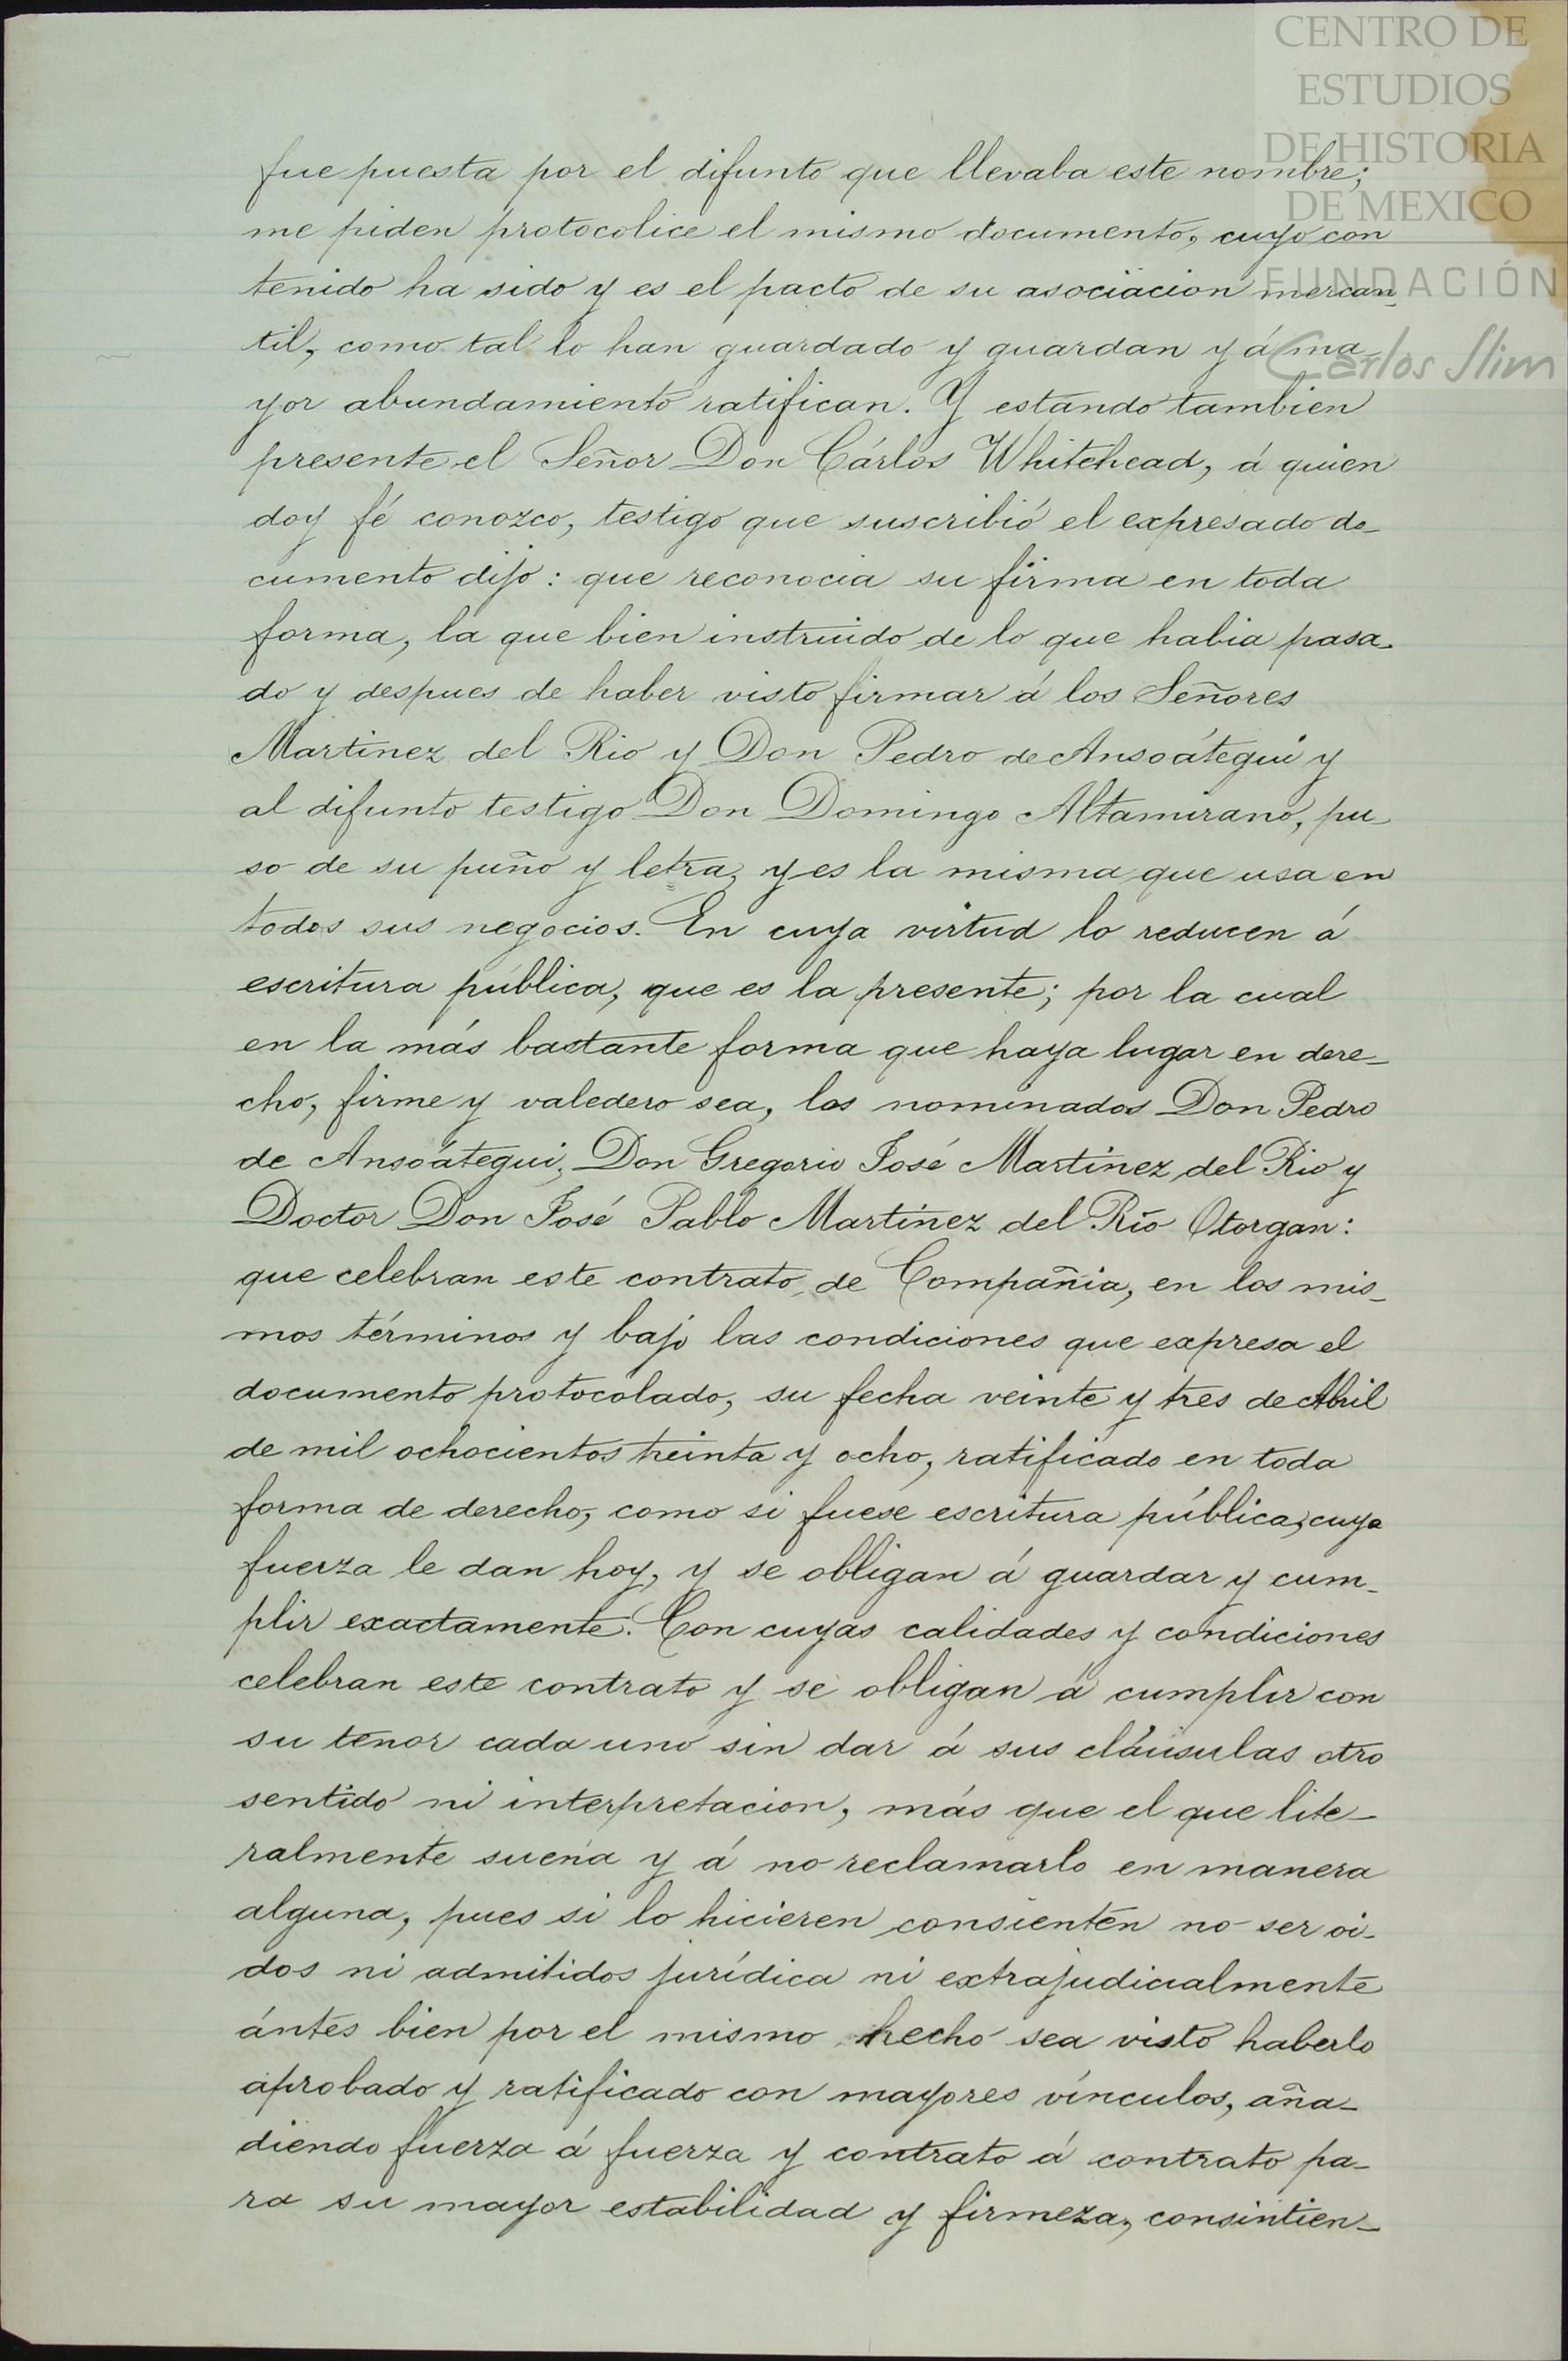 CENTRO DE
ESTUDIOS
DE HISTORIA
DE MEXICO
FUNDACIÓN
Carlos Slim
fue puesta por el difunto que llevaba este nombre;
me piden protocolice el mismo documento, cuyo con
tenido ha sido y es el pacto de su asociacion mercan_
til, como tal lo han guardado y guardan y á ma_
yor abundamiento ratifican. Y estando tambien
presente el Señor Don Cárlos Whitehead, á quien
doy fé conozco, testigo que suscribió el expresado do_
cumento dijo: que reconocia su firma en toda
forma, la que bien instruido de lo que habia pasa_
do y despues de haber visto firmar á los Señores
Martinez del Rio y Don Pedro de Ansoátegui y
al difunto testigo Don Domingo Altamirano, pu_
so de su puño y letra, y es la misma que usa en
todos sus negocios. En cuya virtud lo reducen á
escritura pública, que es la presente; por la cual
en la más bastante forma que haya lugar en dere_
cho, firme y valedero sea, los nominados Don Pedro
de Ansoátegui, Don Gregorio José Martinez del Rio y
Doctor Don José Pablo Martínez del Río Otorgan:
que celebran este contrato de Compañia, en los mis_
mos términos y bajo las condiciones que expresa el
documento protocolado, su fecha veinte y tres de Abril
de mil ochocientos treinta y ocho, ratificado en toda
forma de derecho, como si fuese escritura pública, cuya
fuerza le dan hoy, y se obligan á guardar y cum_
plir exactamente. Con cuyas calidades y condiciones
celebran este contrato y se obligan á cumplir con
su tenor cada uno sin dar á sus cláusulas otro
sentido ni interpretacion, más que el que lite_
ralmente suena y á no reclamarlo en manera
alguna, pues si lo hicieren consienten no ser oi_
dos ni admitidos jurídica ni extrajudicialmente
ántes bien por el mismo hecho sea visto haberlo
aprobado y ratificado con mayores vínculos, aña_
diendo fuerza á fuerza y contrato á contrato pa_
ra su mayor estabilidad y firmeza, consintien_